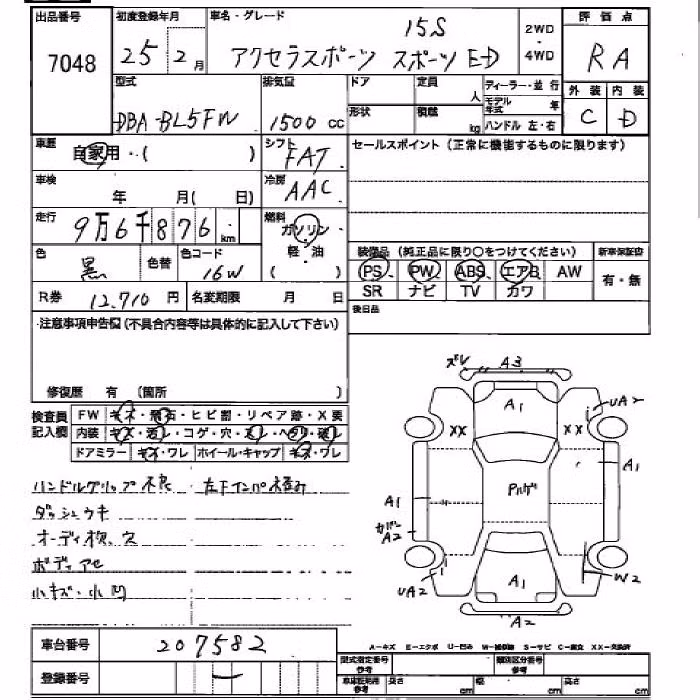 出品番号 初度登録年月 車名・グレード 15S 2WD・4WD 評価点
7048 25 2月 アクセラスポーツ スポーツED RA
型式 排気量 ドア 定員 人 ディーラー・並行 外装 内装
DBA-BL5FW 1500cc 形状 積載 kg モデル年式 年 C D
ハンドル 左・右
車歴 自家用・( ) シフト FAT セールスポイント(正常に機能するものに限ります)
車検 年 月( 日) 冷房 AAC
走行 9万6千876km 燃料 ガソリン・軽・油( )
色 黒 色替 色コード 16W 装備品(純正品に限り○をつけてください) 新車保証書
PS PW ABS エアB AW 有・無
SR ナビ TV カワ
R券 12,710円 名変期限 月 日 後日品
注意事項申告欄(不具合内容等は具体的に記入して下さい)
修復歴 有 (箇所 )
検査員記入欄 FW キズ・飛石・ヒビ割・リペア跡・X要
内装 キズ・汚レ・コゲ・穴・スレ・ヘタリ・破レ
ドアミラー キズ・ワレ ホイール・キャップ キズ・ワレ
ハンドルグリップ不良 左下インパ
ダッシュウキ
オーディオ欠、穴
ボディアセ
小キズ・小凹
ズレ A3
A1 UA2
XX XX
A1 A1
カバーA2
UA2 A1 W2
A2
車台番号 207582
登録番号 ー
A-キズ E-エクボ U-凹み W-補修跡 S-サビ C-腐食 XX-交換済
型式指定番号 参考 類別区分番号 参考
車庫証明用 参考 長さ cm 幅 cm 高さ cm